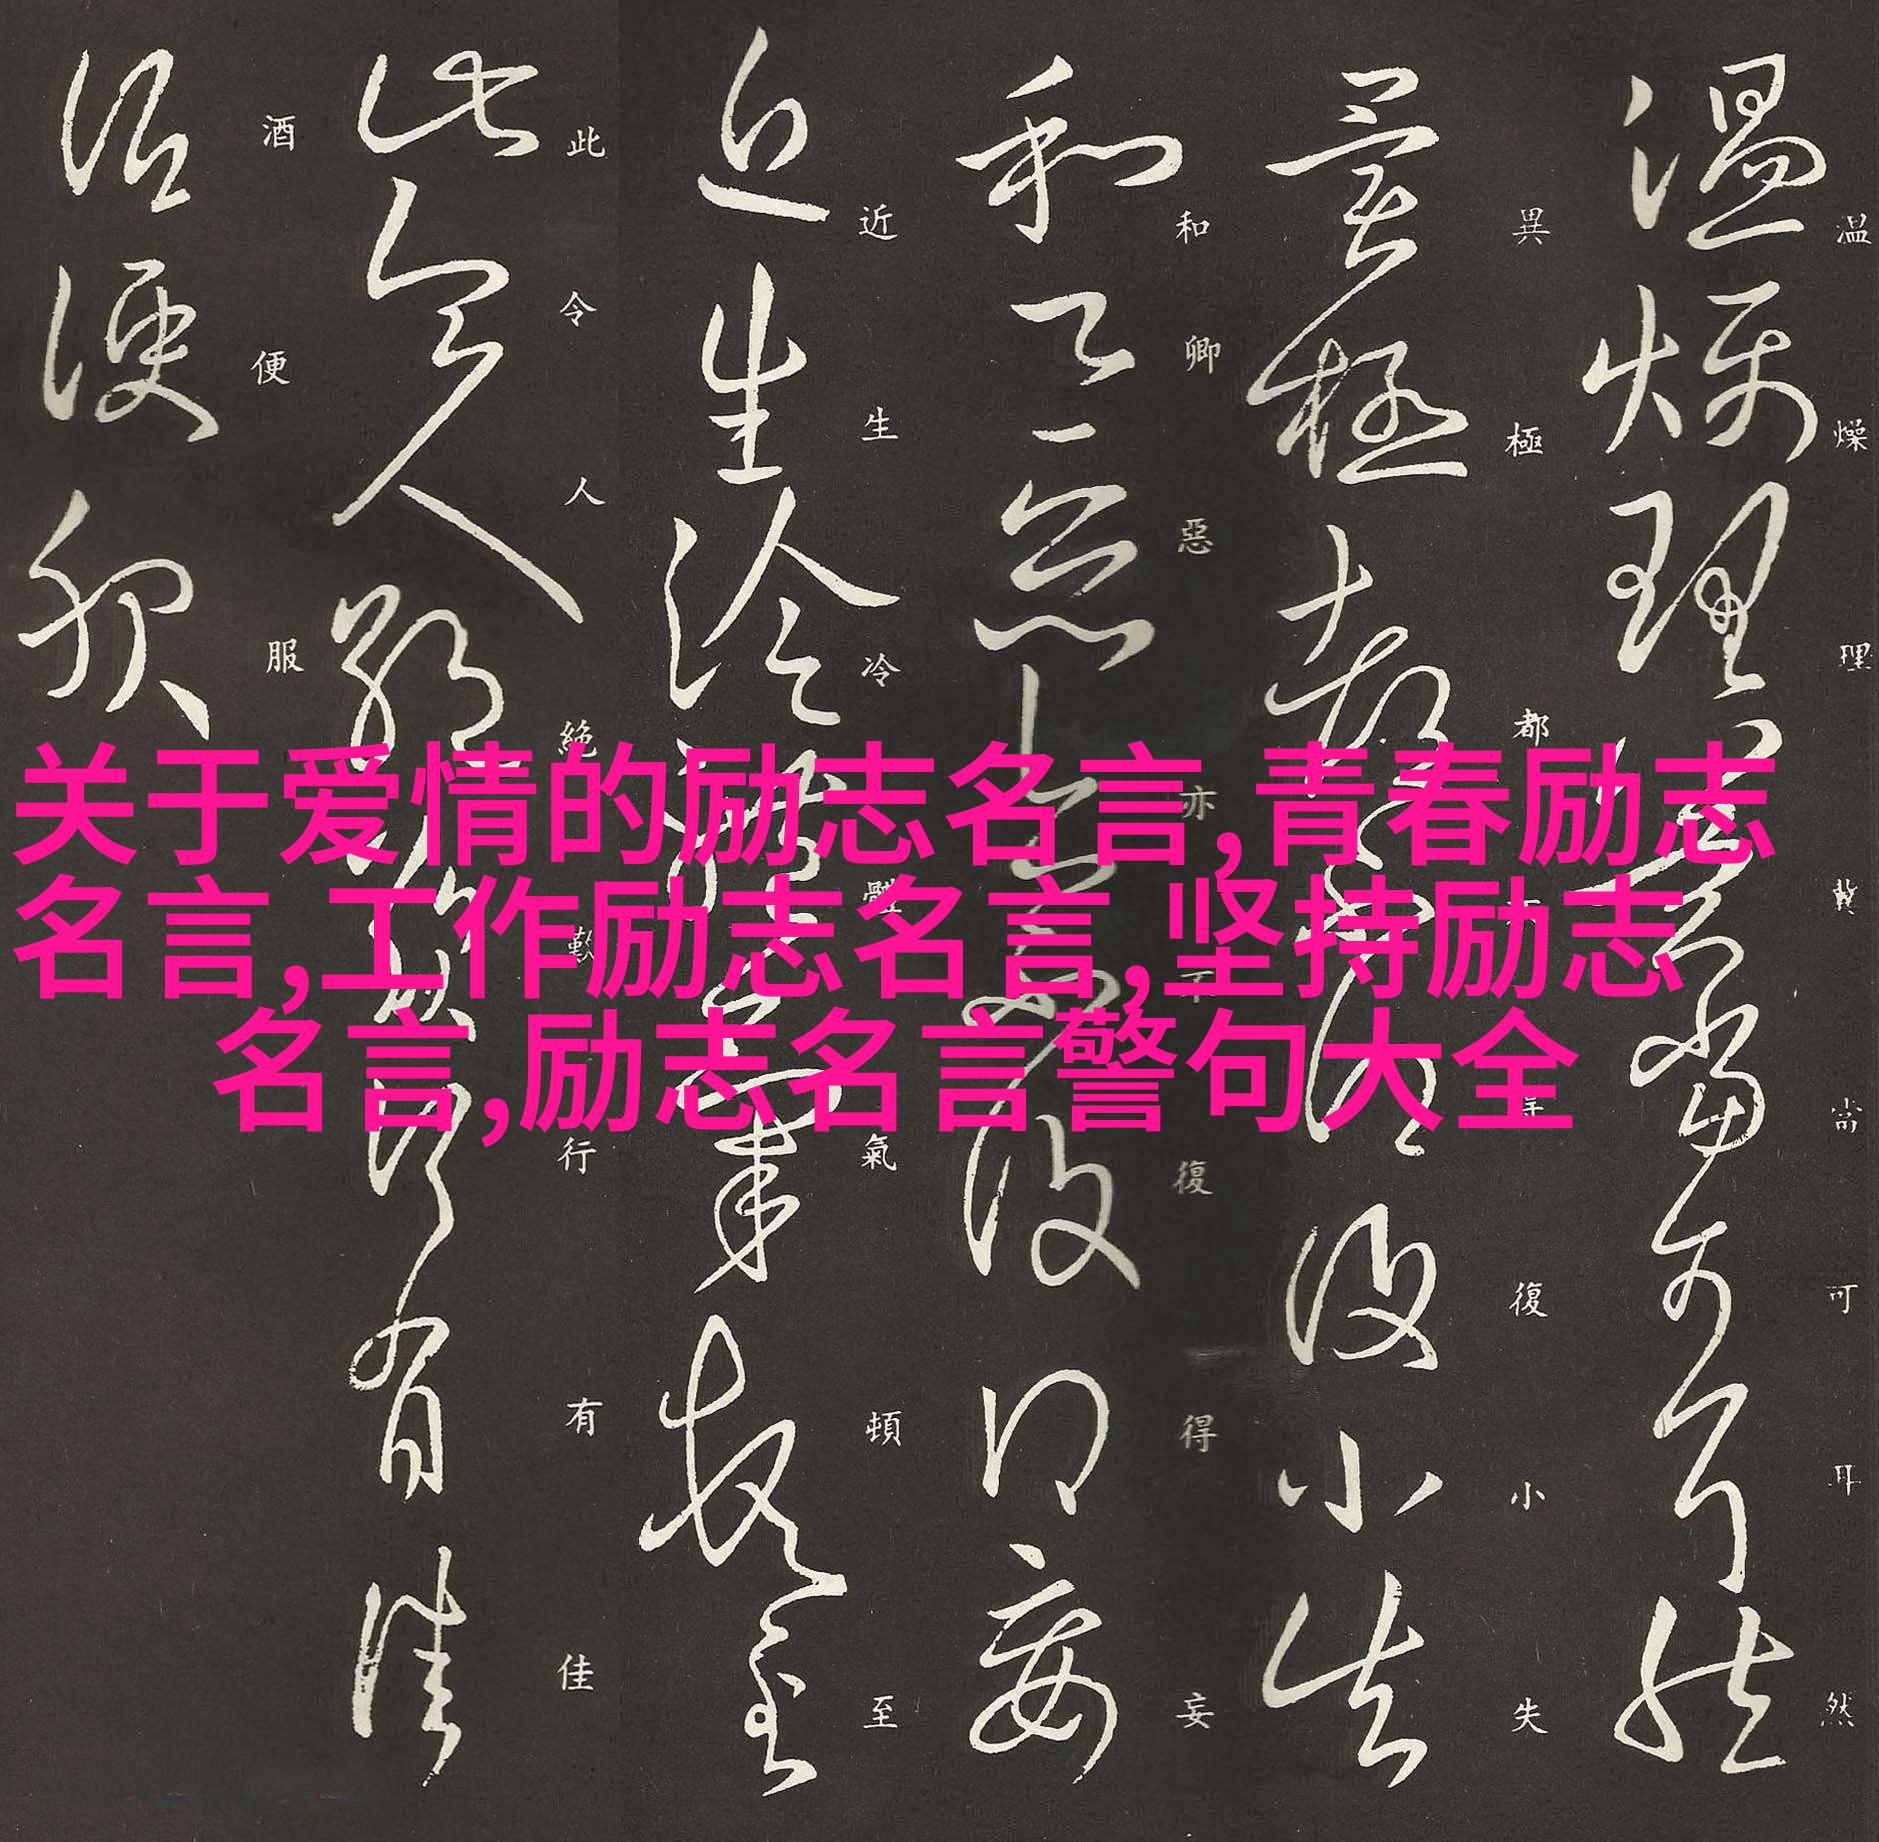 温燥理冀當可耳然
異極都不得復小失
和卿惡亦不復得妄
近生冷體氣頓至
此令人絶歎行有佳
酒便服
关于爱情的励志名言,青春励志
名言,工作励志名言,坚持励志
名言,励志名言警句大全